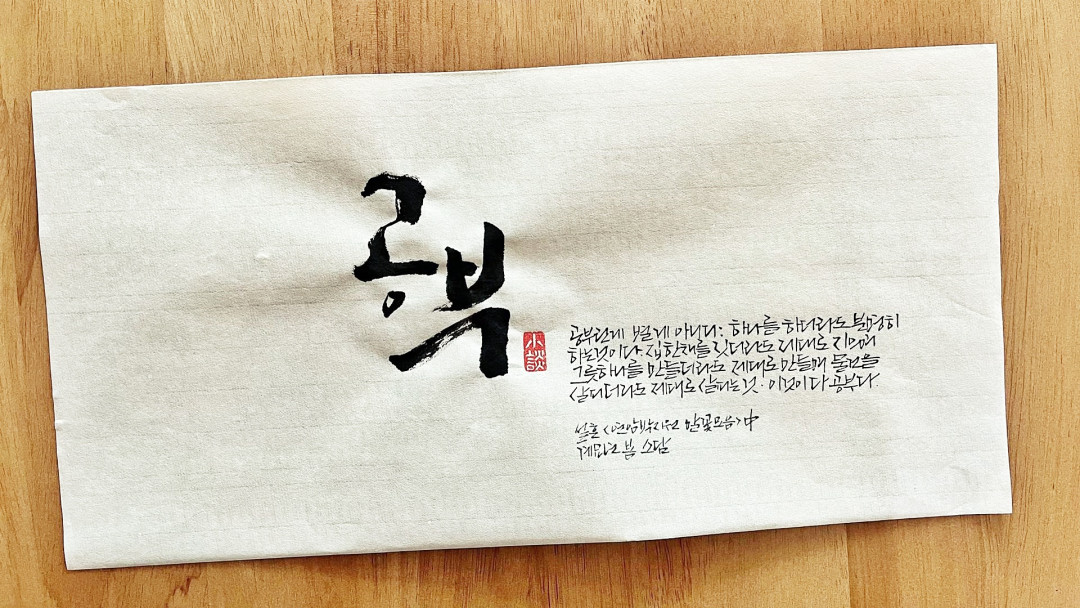 공부
小談
공부란게 별게 아니다: 하나를 하더라도 분명히
하는것이다. 집한채를 짓더라도 제대로 지으며
그릇하나를 만들더라도 제대로 만들며 물건을
살피더라도 제대로 살피는것. 이것이 다 공부다.
설흔 <연암박지원 말꽃모음>中
계묘년 봄 소담